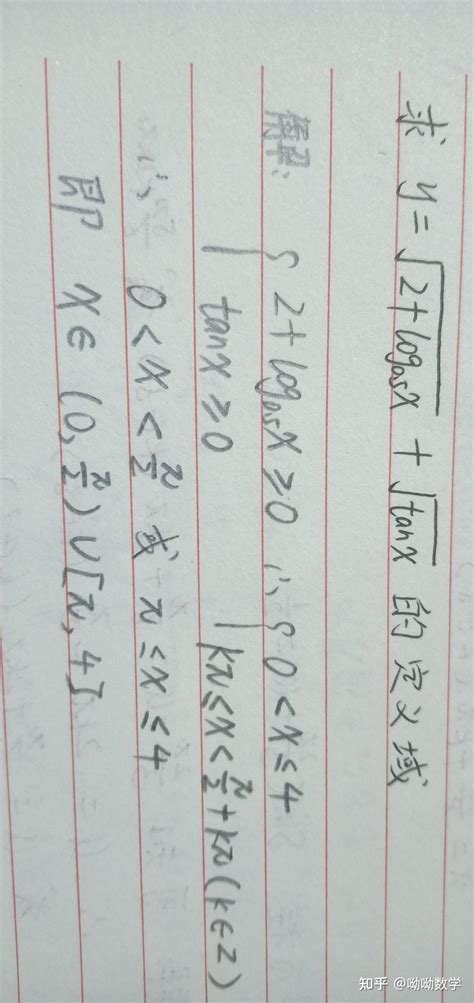 求 y = √(2+log₀.₅x) + √(tanx) 的定义域
解: { 2+log₀.₅x ≥ 0 ∴ { 0 < x ≤ 4
tanx ≥ 0 kπ ≤ x < π/2 + kπ (k∈Z)
∴ 0 < x < π/2 或 π ≤ x ≤ 4
即 x ∈ (0, π/2) ∪ [π, 4]
知乎 @呦呦数学